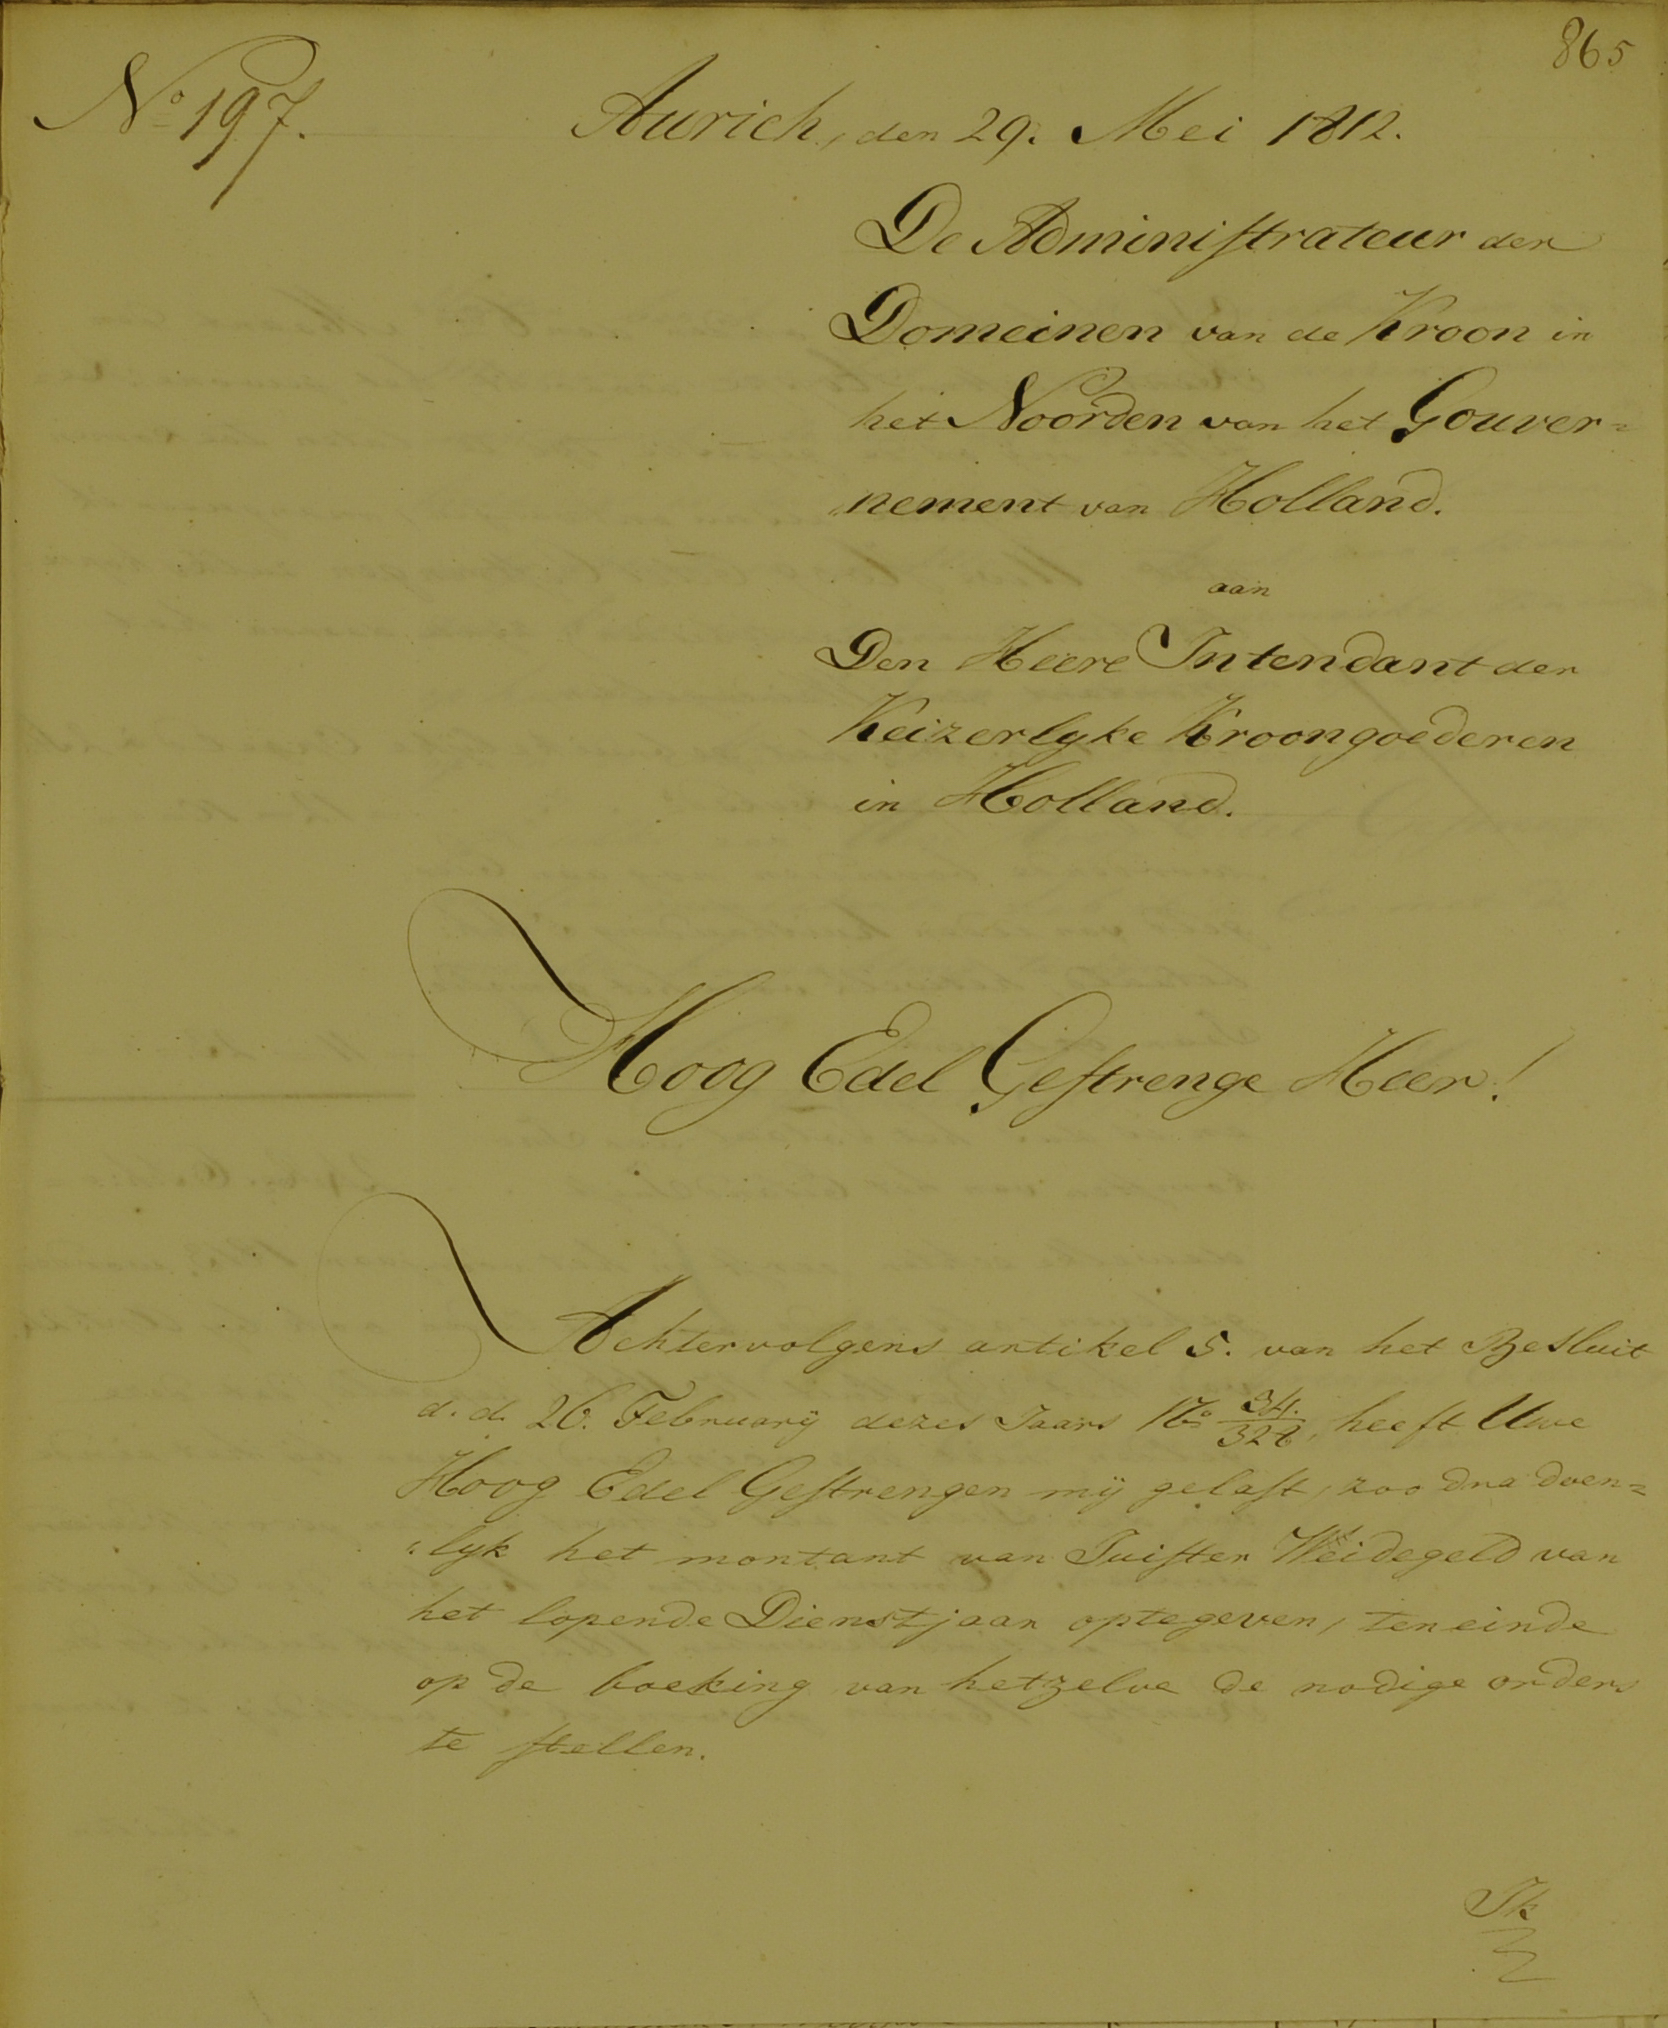 865
No 197.
Aurich, den 29. Mei 1812.
De Administrateur der
Domeinen van de Kroon in
het Noorden van het Gouver=
nement van Holland.
aan
Den Heere Intendant der
Keizerlyke Kroongoederen
in Holland.
Hoog Edel Gestrenge Heer!
Achtervolgens artikel 5. van het Besluit
d. d. 26. February dezes Jaars No 34./328, heeft Uwe
Hoog Edel Gestrengen mij gelast, zoo dra doen=
"lyk het montant van Juister Weidegeld van
het lopende Dienstjaar optegeven, ten einde
op de boeking van hetzelve de nodige orders
te stellen.
Ik